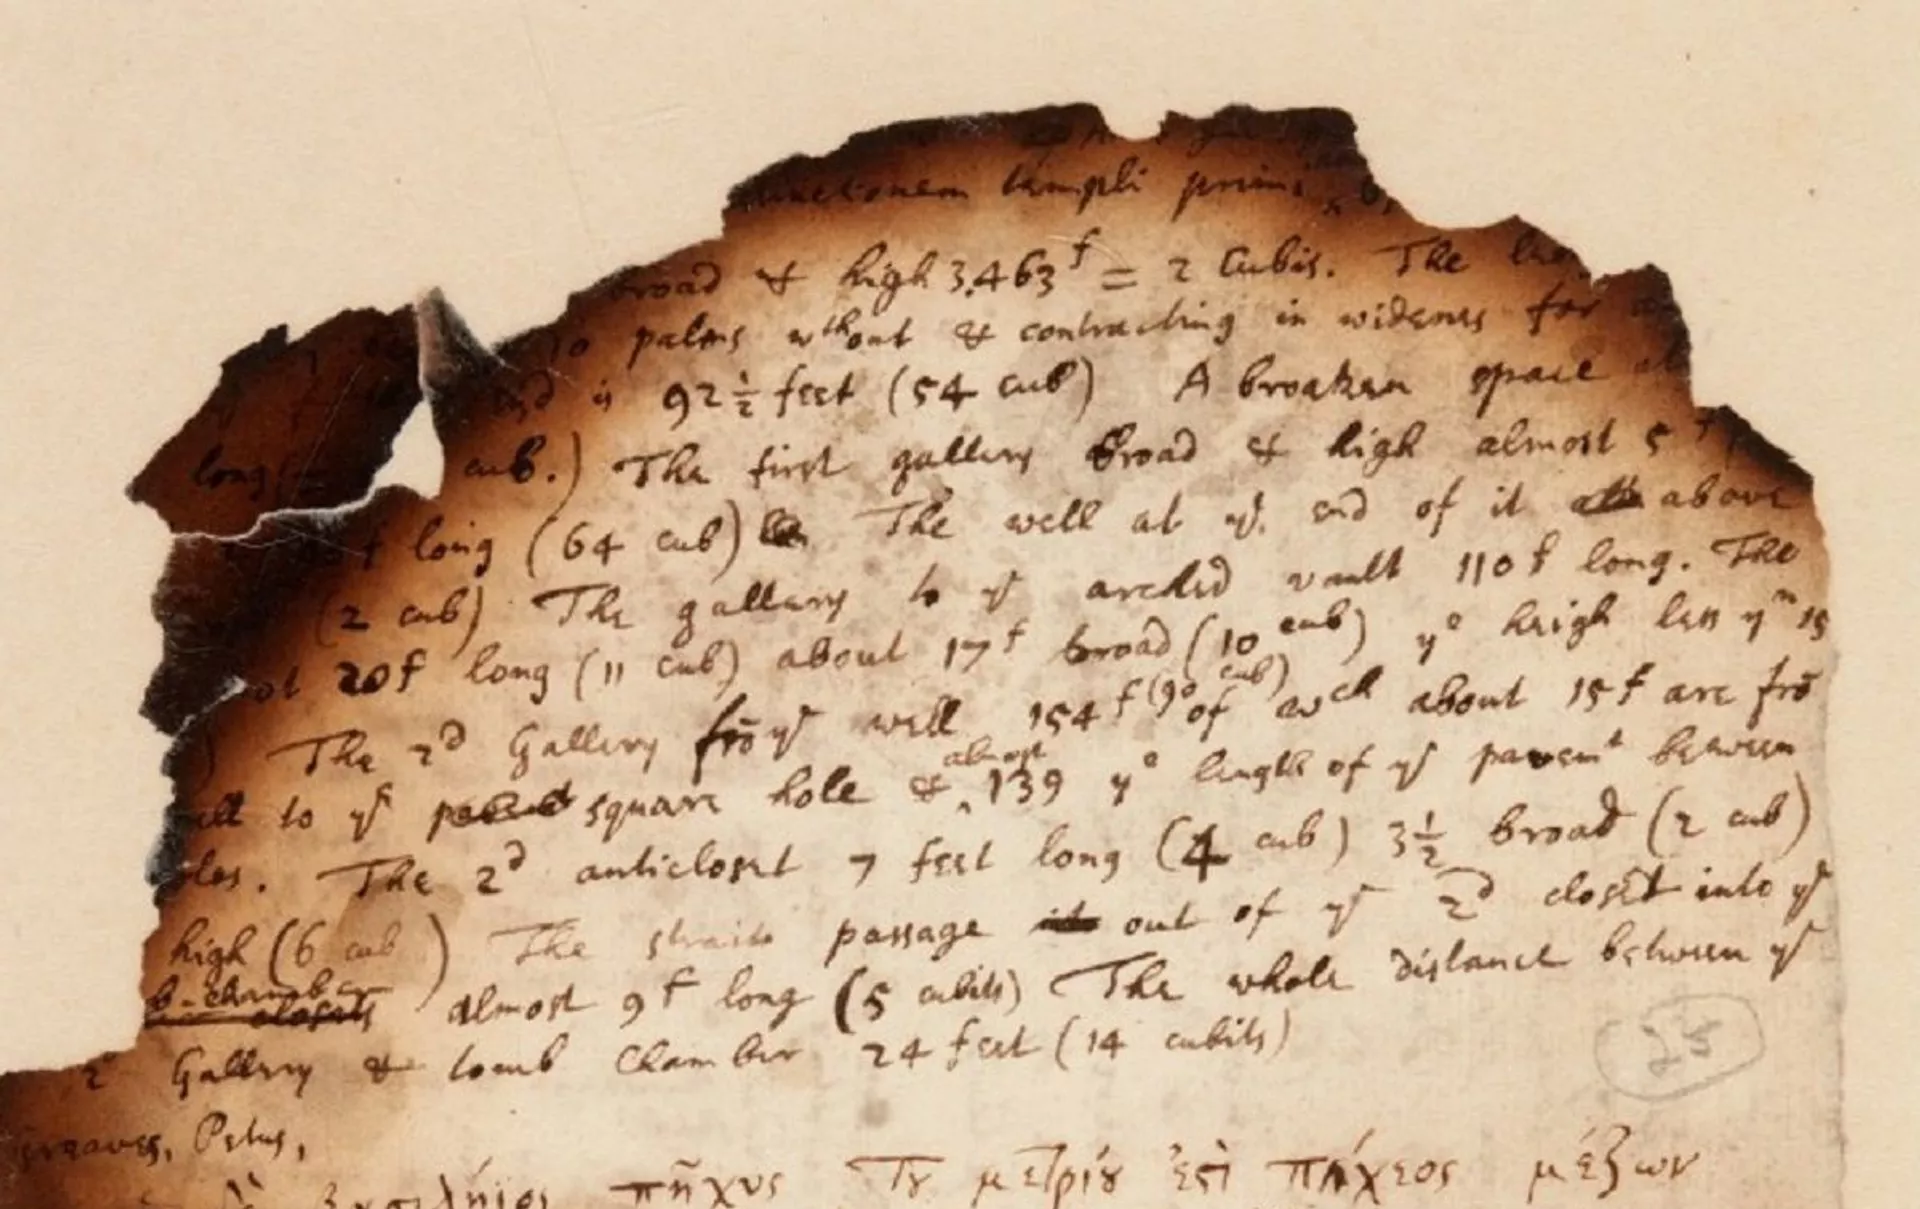 templi primi
broad & high 3.463f = 2 Cubis. The
10 palms wthout & contracting in widenes for
is 92½ feet (54 cub) A broaken space
long cub.) The first gallery broad & high almost 5f
f long (64 cub) The well at ye end of it above
(2 cub) The gallery to ye arched vault 110f long. The
20f long (11 cub) about 17f broad (10 cub) ye heigh less ym 15
) The 2d Gallery frō ye well 154f (90 cub) of wch about 15f are frō
to ye square hole & almost 139 ye length of ye pavemt between
The 2d anticloset 7 feet long (4 cub) 3½ broad (2 cub)
high (6 cub) The strait passage out of ye 2d closet into ye
almost 9f long (5 cubits) The whole distance between ye
2 Gallery & tomb Chamber 24 feet (14 cubits)
25
Greaves, Petus,
πῆχυς Τȣ̃ μετρίȣ ἐστὶ πήχεος μέζων